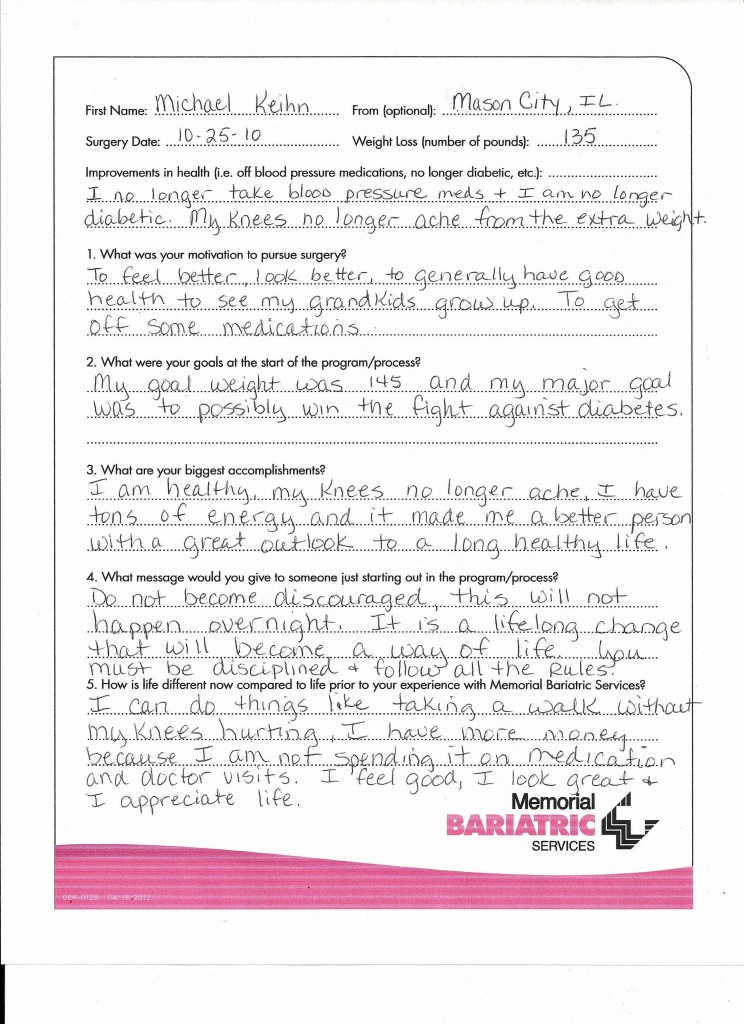 First Name: Michael Keihn From (optional): Mason City, IL.
Surgery Date: 10-25-10 Weight Loss (number of pounds): 135
Improvements in health (i.e. off blood pressure medications, no longer diabetic, etc.):
I no longer take blood pressure meds + I am no longer
diabetic. My Knees no longer ache from the extra weight.
1. What was your motivation to pursue surgery?
To feel better, look better, to generally have good
health to see my grandkids grow up. To get
off some medications
2. What were your goals at the start of the program/process?
My goal weight was 145 and my major goal
was to possibly win the fight against diabetes.
3. What are your biggest accomplishments?
I am healthy, my Knees no longer ache, I have
tons of energy and it made me a better person
with a great outlook to a long healthy life.
4. What message would you give to someone just starting out in the program/process?
Do not become discouraged, this will not
happen overnight. It is a lifelong change
that will become a way of life. You
must be disciplined + follow all the Rules.
5. How is life different now compared to life prior to your experience with Memorial Bariatric Services?
I can do things like taking a walk without
my Knees hurting, I have more money
because I am not spending it on medication
and doctor visits. I feel good, I look great +
I appreciate life.
Memorial
BARIATRIC
SERVICES
089-0128 04/18/2012